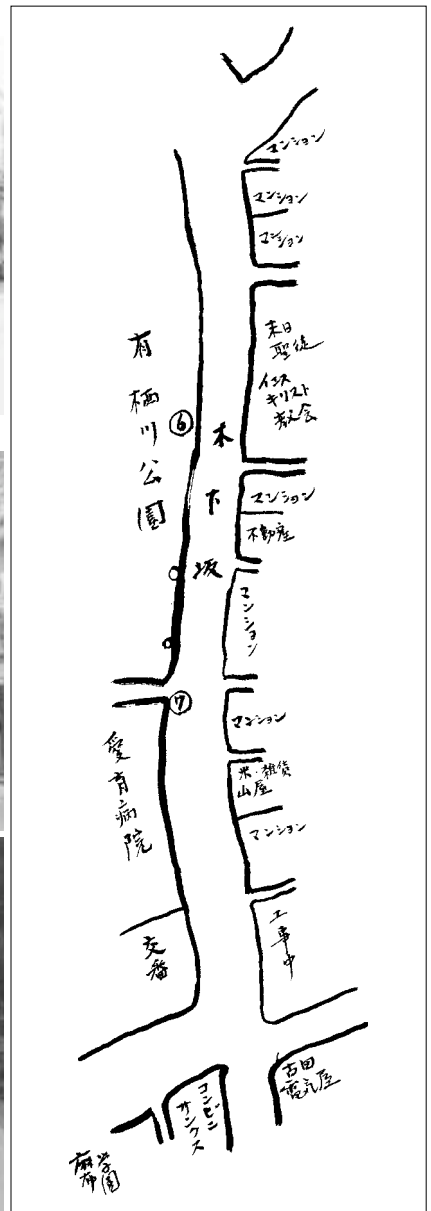 マンション
マンション
マンション
末日
聖徒
イエス
キリスト
教会
有栖川公園
⑥
木下坂
マンション
不動産
マンション
⑦
マンション
米・雑貨
山屋
マンション
愛育病院
交番
工事中
古田
電気屋
コンビニ
サンクス
麻布
学園